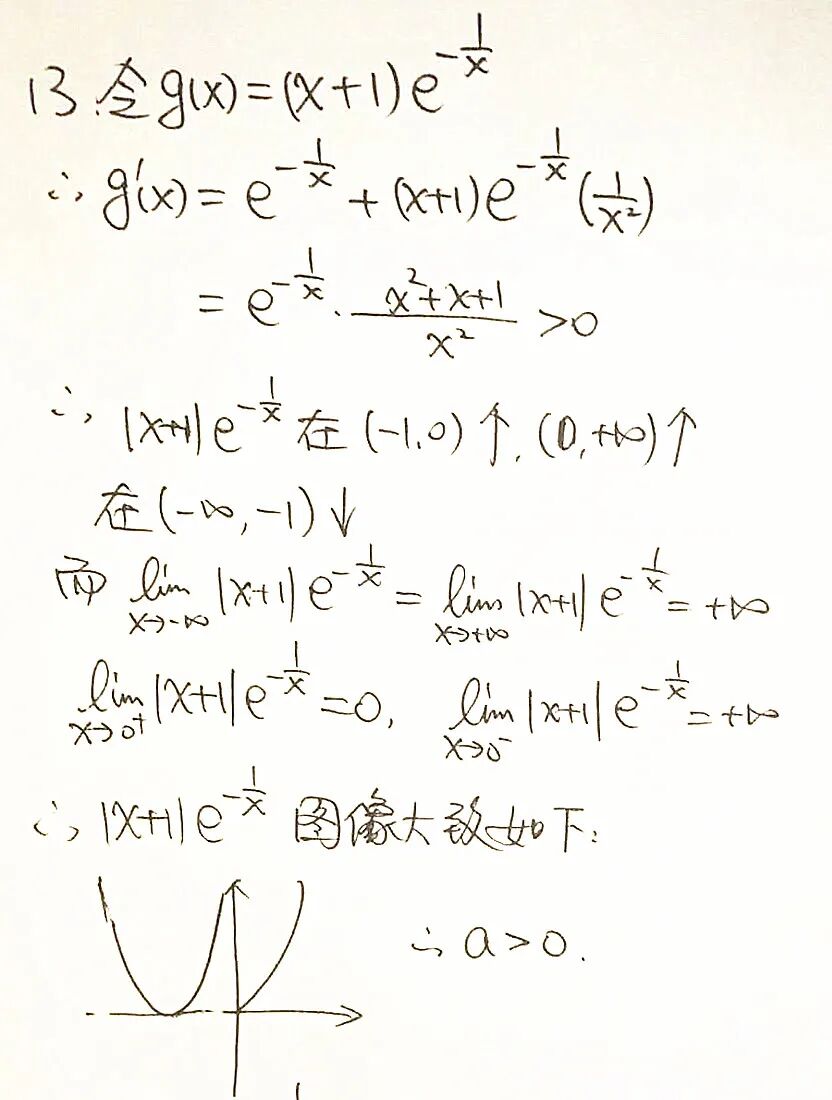 13.令g(x)=(x+1)e^{-\frac{1}{x}}
∴ g'(x)=e^{-\frac{1}{x}}+(x+1)e^{-\frac{1}{x}}(\frac{1}{x^2})
=e^{-\frac{1}{x}}·\frac{x^2+x+1}{x^2}>0
∴ |x+1|e^{-\frac{1}{x}}在(-1,0)↑,(0,+∞)↑
在(-∞,-1)↓
而 \lim_{x→-∞}|x+1|e^{-\frac{1}{x}}=\lim_{x→+∞}|x+1|e^{-\frac{1}{x}}=+∞
\lim_{x→0^+}|x+1|e^{-\frac{1}{x}}=0, \lim_{x→0^-}|x+1|e^{-\frac{1}{x}}=+∞
∴ |x+1|e^{-\frac{1}{x}} 图像大致如下:
∴ a>0.